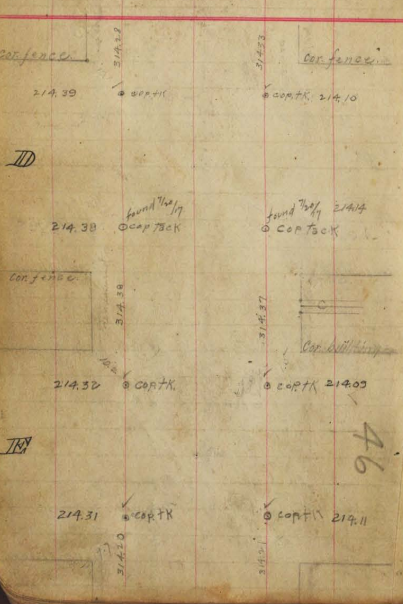 314.28 314.33
Cor. fence Cor. fence
214.39 cop.tK cop.tK. 214.10
D
found 7/20/17 found 7/20/17 214.14
214.38 copTacK CopTacK
Cor. fence
314.38 314.37
C
Cor.
214.32 cop.tK cop.tK 214.09
E
46
214.31 cop.tK cop.tK 214.11
314.20